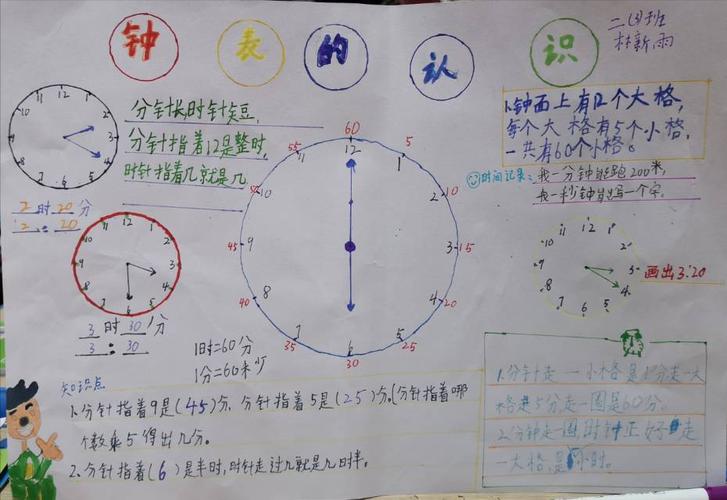 钟表的认识
二(3)班
林新雨
分针长时针短,
分针指着12是整时,
时针指着几就是几
1.钟面上有12个大格,
每个大格有5个小格,
一共有60个小格。
时间记录:我一分钟能跑200米,
我一秒钟能写一个字。
12 1 2 3 4 5 6 7 8 9 10 11
2时20分
2:20
12 1 2 3 4 5 6 7 8 9 10 11
3时30分
3:30
60 5 10 15 20 25 30 35 40 45 50 55
12 1 2 3 4 5 6 7 8 9 10 11
12 1 2 3 4 5 6 7 8 9 10 11
画出3:20
1时=60分
1分=60秒
知识点
1.分针指着9是(45)分,分针指着5是(25)分。(分针指着哪
个数乘5得出几分。
2.分针指着(6)是半时,时针走过几就是几时半。
1.分针走一小格是1分走一大
格走5分走一圈是60分。
2.分钟走一圈,时针正好走
一大格,是小时。